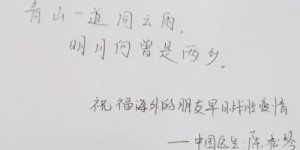 青山一道同云雨，
明月何曾是两乡。
祝福海外的朋友早日战胜疫情
——中国医生：陈松琴